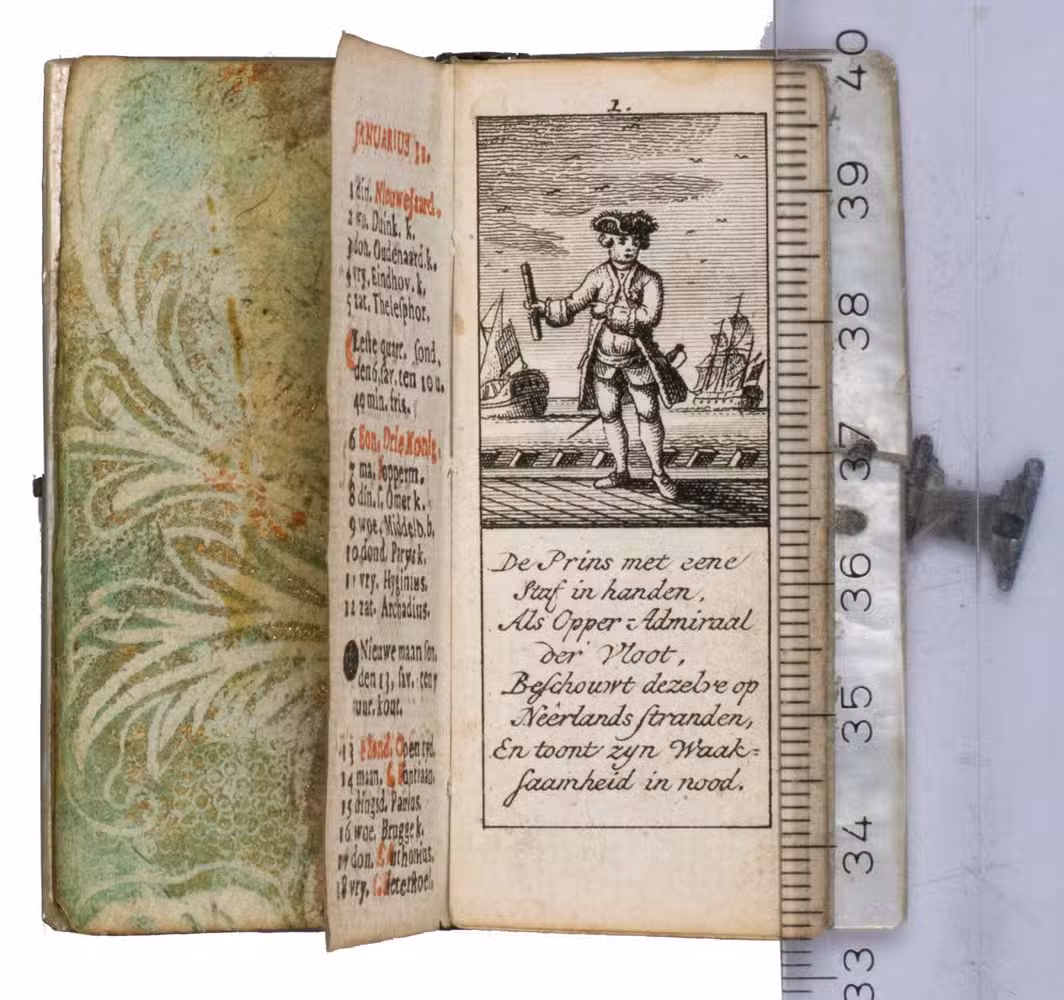 JANUARIUS 31.
1 din. Nieuwejaard.
2 wo. Duink. k.
3 don. Oudenaard. k.
4 vry. Eindhov. k.
5 zat. Thelesphor.
Leste quar. sond.
den 6, sav. ten 10 u.
49 min. tris.
6 Son. Drie Konig
7 ma. Kopperm.
8 din. f. Omer k.
9 woe. Middelb. b.
10 dond. Parys k.
11 vry. Hyginius.
12 zat. Archadius.
Nieuwe maan son.
den 13, sav. ten
uur. kout.
13 Sond. Open tyd.
14 maan.
15 dingsd.
16 woe. Brugge k.
17 don. Anthonius.
18 vry. Peterstoel.
1.
De Prins met eene
Staf in handen,
Als Opper=Admiraal
der Vloot,
Beschouwt dezelve op
Neêrlands stranden,
En toont zyn Waak=
saamheid in nood.
40
39
38
37
36
35
34
33